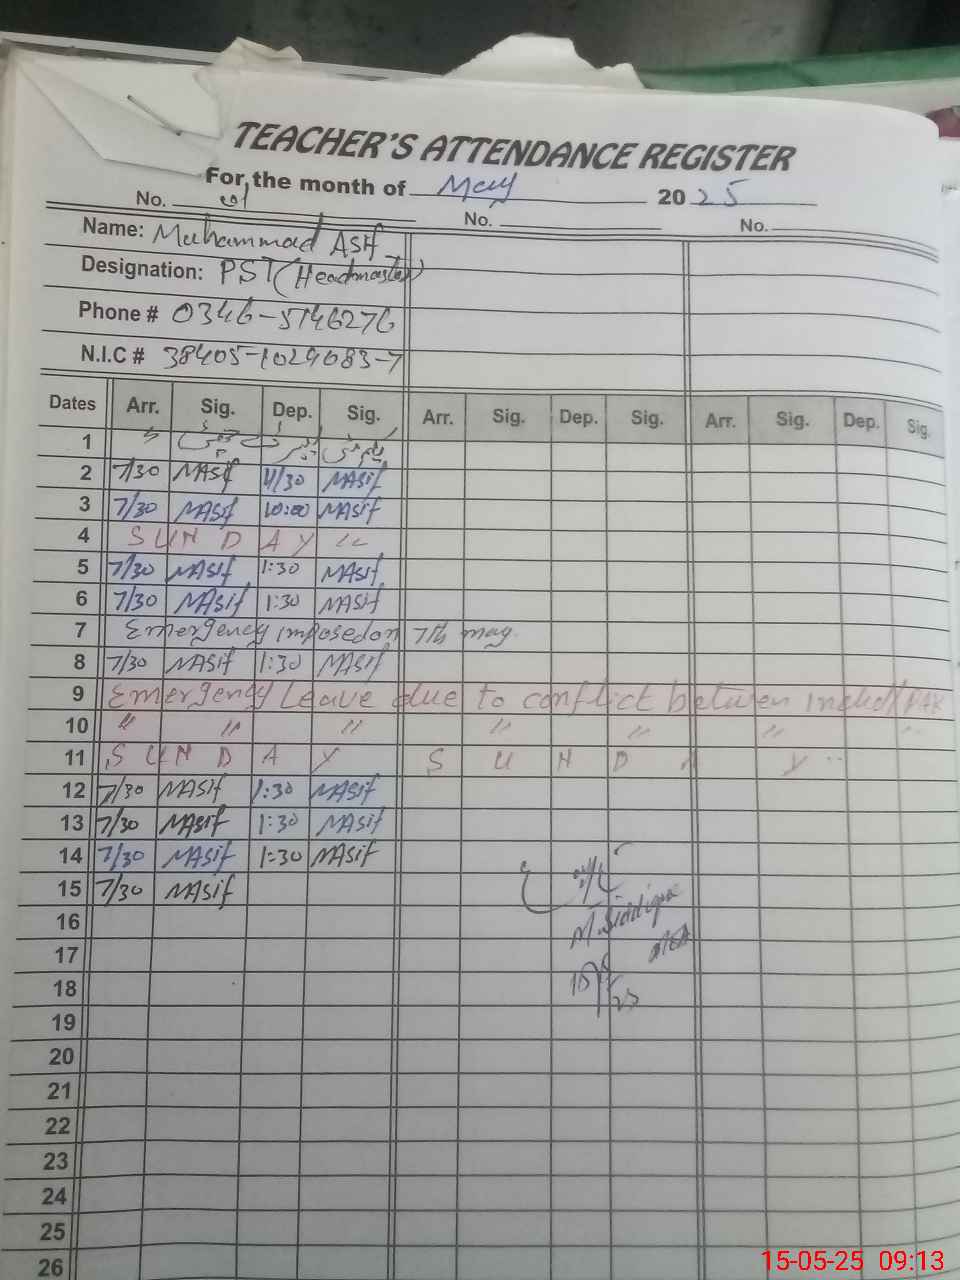 TEACHER'S ATTENDANCE REGISTER
For the month of May 2025
No. 01 No. No.
Name: Muhammad Asif
Designation: PST (Headmaster)
Phone # 0346-5146276
N.I.C # 38405-1029683-7
Dates Arr. Sig. Dep. Sig. Arr. Sig. Dep. Sig. Arr. Sig. Dep. Sig.
1
2 7/30 MAsif 11/30 MAsif
3 7/30 MAsif 10:00 MAsif
4 S U N D A Y "
5 7/30 MAsif 1:30 MAsif
6 7/30 MAsif 1:30 MAsif
7 Emergency imposed on 7th may.
8 7/30 MAsif 1:30 MAsif
9 Emergency Leave due to conflict between India / PAK
10 " " " " " " "
11 S U N D A Y S U N D A Y
12 7/30 MAsif 1:30 MAsif
13 7/30 MAsif 1:30 MAsif
14 7/30 MAsif 1:30 MAsif
15 7/30 MAsif
M. Siddique
16
17
18
19
20
21
22
23
24
25
26
15-05-25 09:13